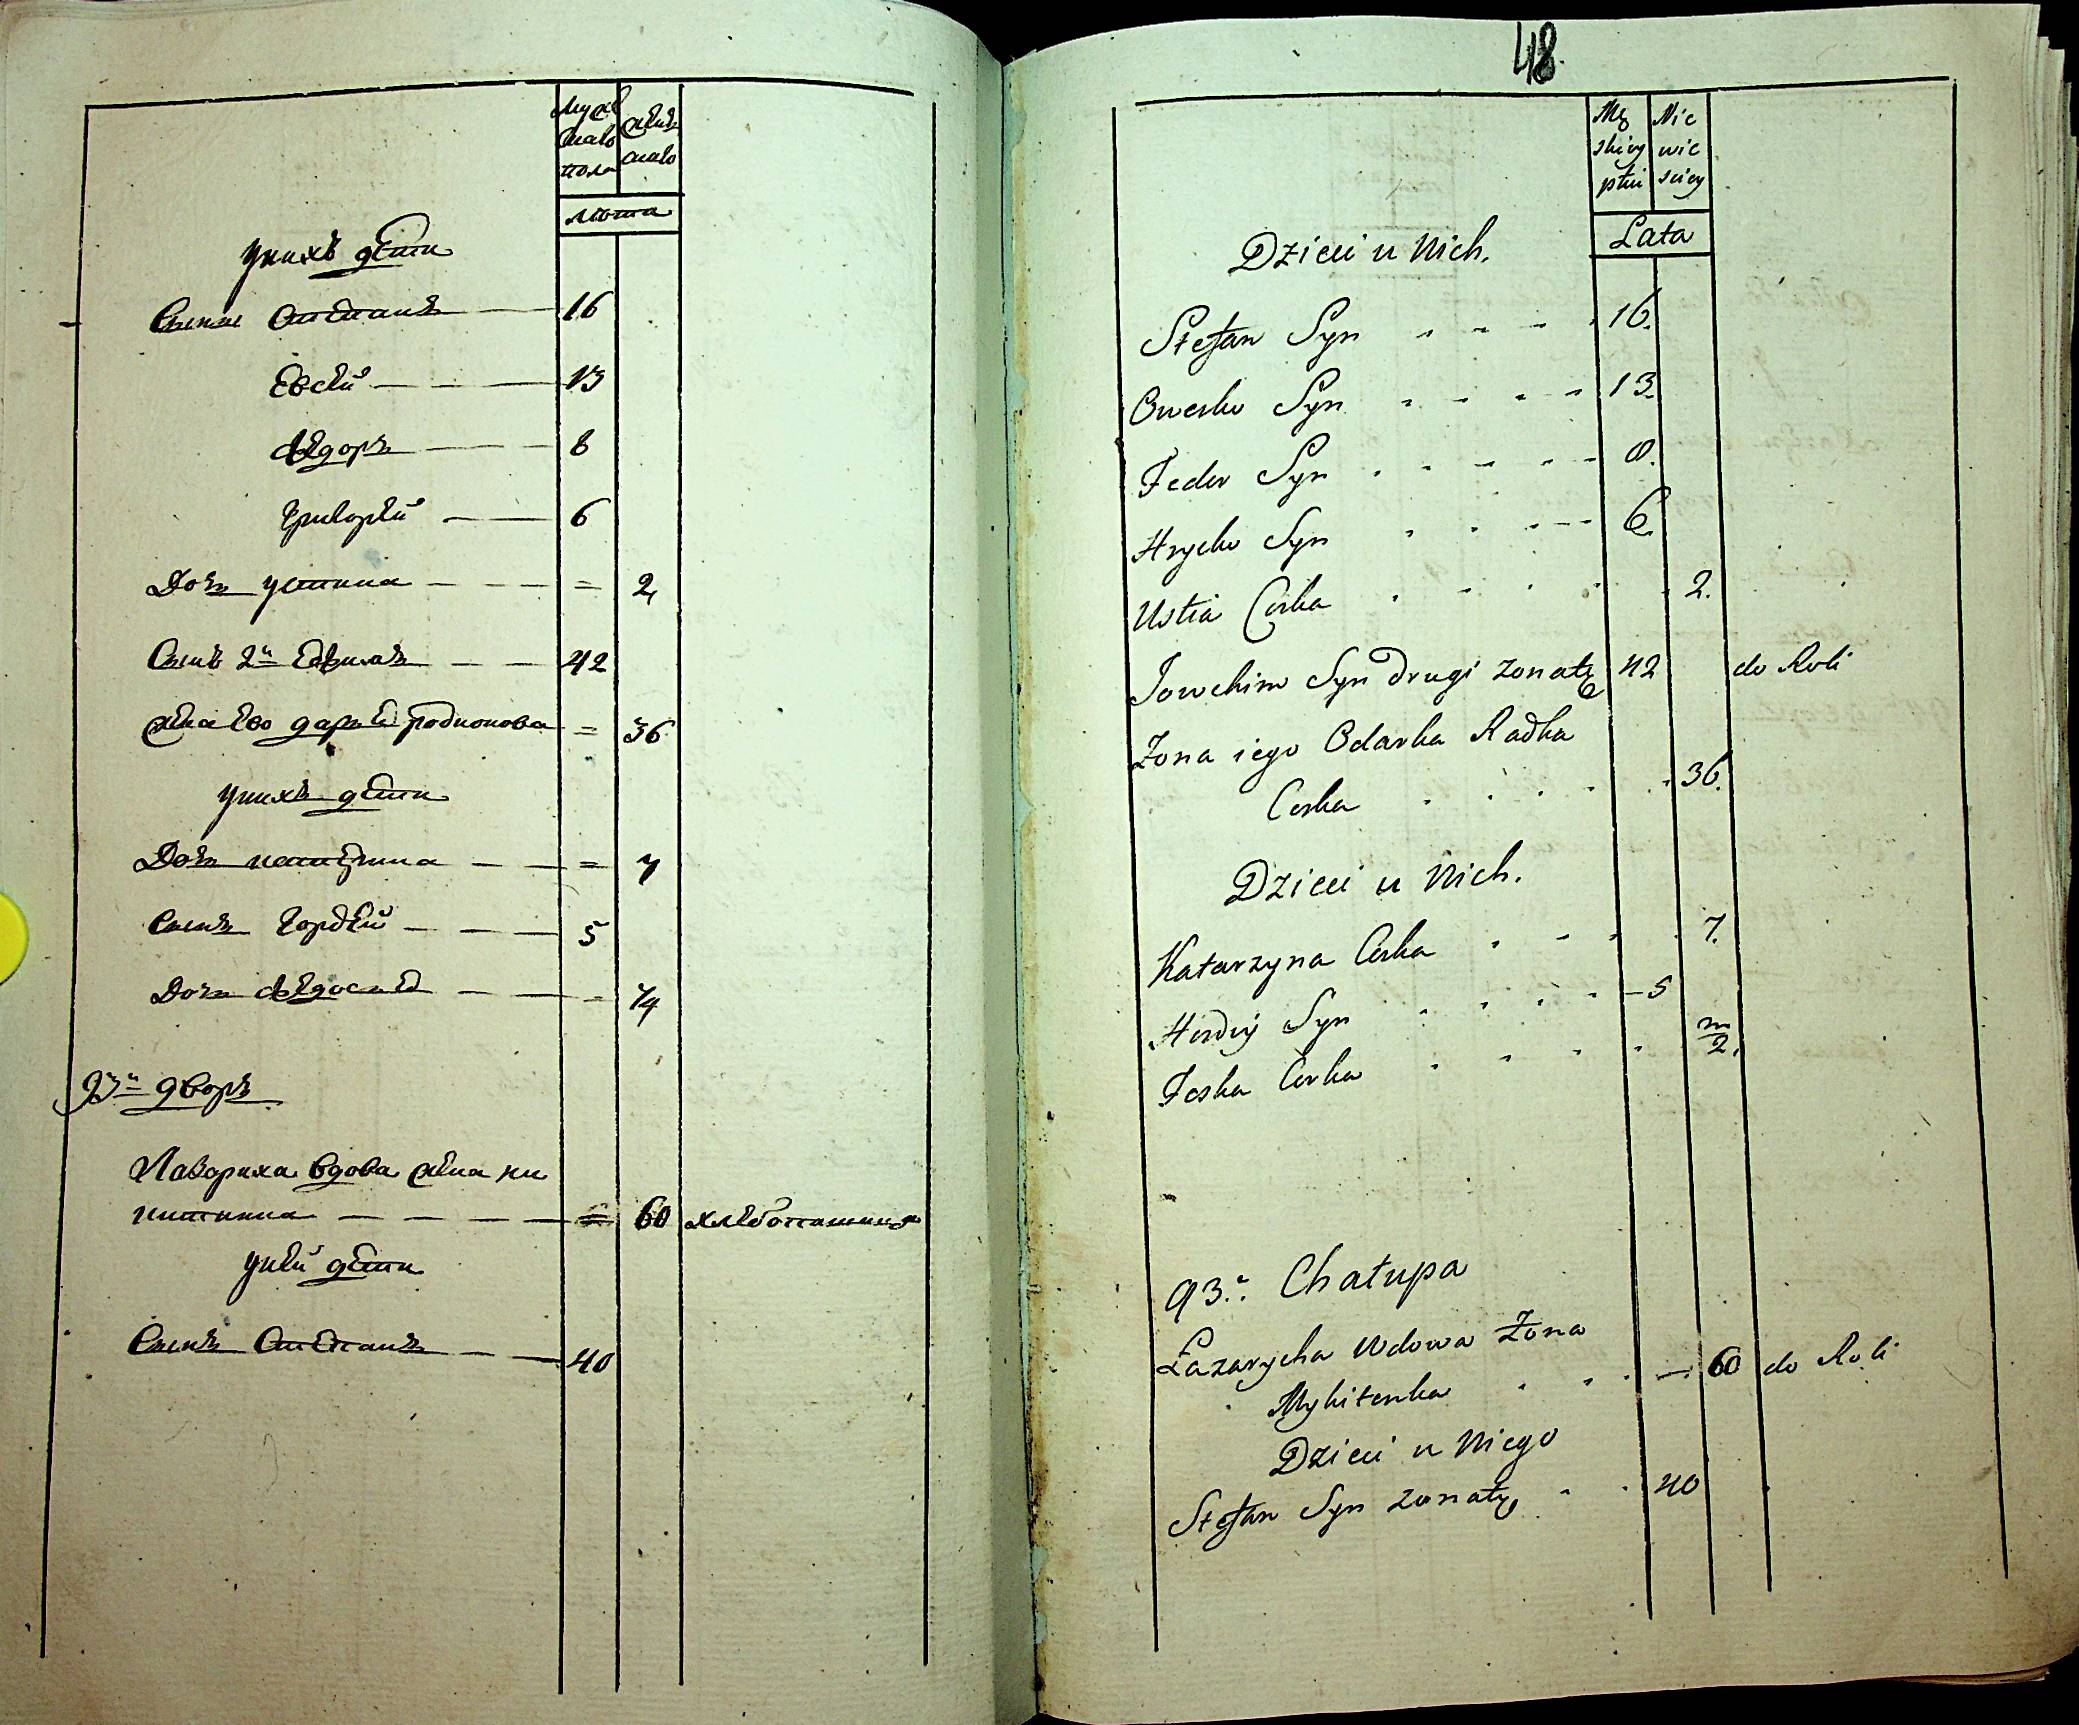 Мужескаго пола
женскаго
лета
у них детей
Сыны Степанъ 16
Евсей 13
Федоръ 8
Григорей 6
Дочь устина = 2
Сынъ 2й Ефимъ 42
жена Ево дарья родионова = 36
у них дети
Дочь катерина = 7
Сынъ Гордей 5
Дочь Федосья - ½
93й дворъ
Лазориха вдова жена ни
китина = 60 хлебопашица
у ней дети
Сынъ Степанъ 40
48.
Mę
skiey
płci
Nie
wie
sciey
Lata
Dzieci u Nich.
Stefan Syn 16.
Owerko Syn 13.
Feder Syn 8.
Hryćko Syn 6.
Ustia Corka 2.
Jowchim Syn drugi zonaty 42 do Roli
Zona iego Odarka Radka
Corka 36.
Dzieci u Nich.
Katarzyna Corka 7.
Hordiy Syn 5
Feska Corka m/2.
93. Chałupa
Łazarycha Wdowa Zona
Mykitenka 60 do Roli
Dzieci u Niego
Stefan Syn zonaty 40